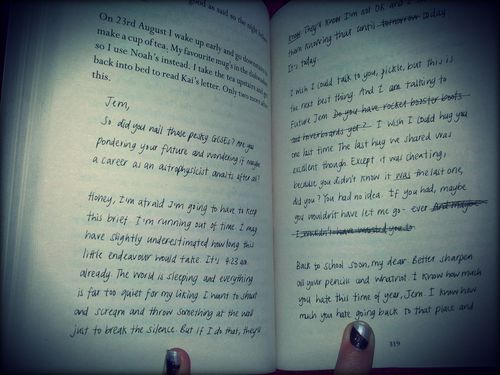 good as said so the night before
On 23rd August I wake up early and go downstairs
make a cup of tea. My favourite mug's in the dishwasher
so I use Noah's instead. I take the tea upstairs and get
back into bed to read Kai's letter. Only two more after
this.
Jem,
So did you nail those pesky GCSEs? Are you
pondering your future and wondering if maybe
a career as an astrophysicist awaits after all?
Honey, I'm afraid I'm going to have to keep
this brief. I'm running out of time. I may
have slightly underestimated how long this
little endeavour would take. It's 4:23 am
already. The world is sleeping and everything
is far too quiet for my liking. I want to shout
and scream and throw something at the wall
just to break the silence. But if I do that, they'll
know. They'll know I'm not OK and I
them knowing that until tomorrow today
It's today.
I wish I could talk to you, pickle, but this is
the next best thing. And I am talking to
Future Jem. Do you have rocket booster boots
and hoverboards yet? I wish I could hug you
one last time. The last hug we shared was
excellent though. Except it was cheating,
because you didn't know it was the last one,
did you? You had no idea. If you had, maybe
you wouldn't have let me go - ever. And maybe
I wouldn't have wanted you to.
Back to school soon, my dear. Better sharpen
all your pencils and whatnot. I know how much
you hate this time of year, Jem. I know how
much you hate going back to that place and
319